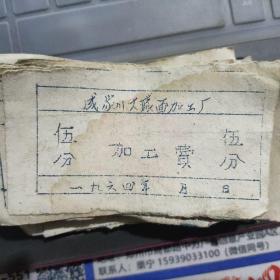 成家川大队面加工厂
伍分 加工费 伍分
一九六四年 月 日
联系人：栗宁 15939033100（微信同号）